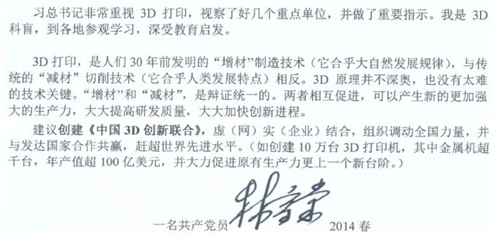 习总书记非常重视 3D 打印，视察了好几个重点单位，并做了重要指示。我是 3D
科盲，到各地参观学习，深受教育启发。
3D 打印，是人们 30 年前发明的“增材”制造技术（它合乎大自然发展规律），与传
统的“减材”切削技术（它合乎人类发展特点）相反。3D 原理并不深奥，也没有太难
的技术关键。“增材”和“减材”，是辩证统一的。两者相互促进，可以产生新的更加强
大的生产力，大大提高研发质量，大大加快创新进程。
建议创建《中国 3D 创新联合》，虚（网）实（企业）结合，组织调动全国力量，并
与发达国家合作共赢，赶超世界先进水平。（如创建 10 万台 3D 打印机，其中金属机超
千台，年产值超 100 亿美元，并大力促进原有生产力更上一个新台阶。）
一名共产党员 2014 春